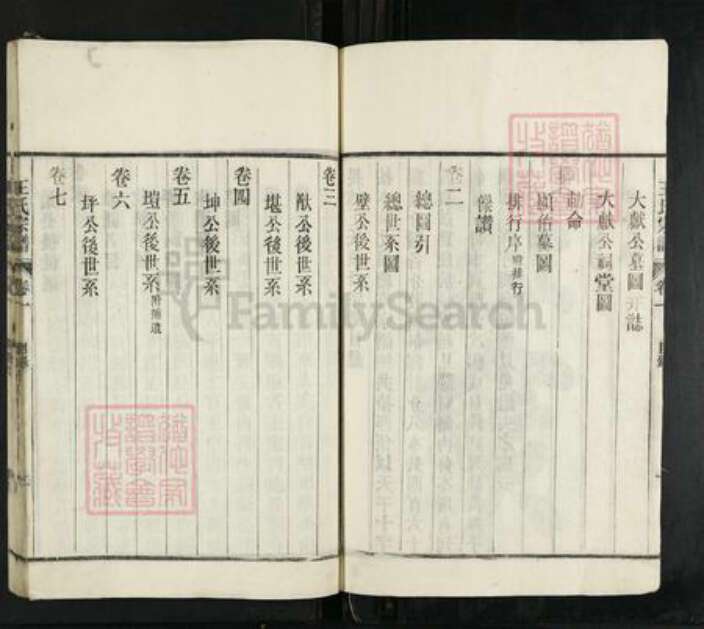 大獻公墓圖并誌
大獻公祠堂圖
勅命
顯佑墓圖
排行序附排行
像讚
卷二
總圖引
總世系圖
壁公後世系
卷三
猷公後世系
堪公後世系
卷四
坤公後世系
卷五
塏公後世系附補遺
卷六
坪公後世系
卷七
王氏宗譜
卷一
目錄
FamilySearch